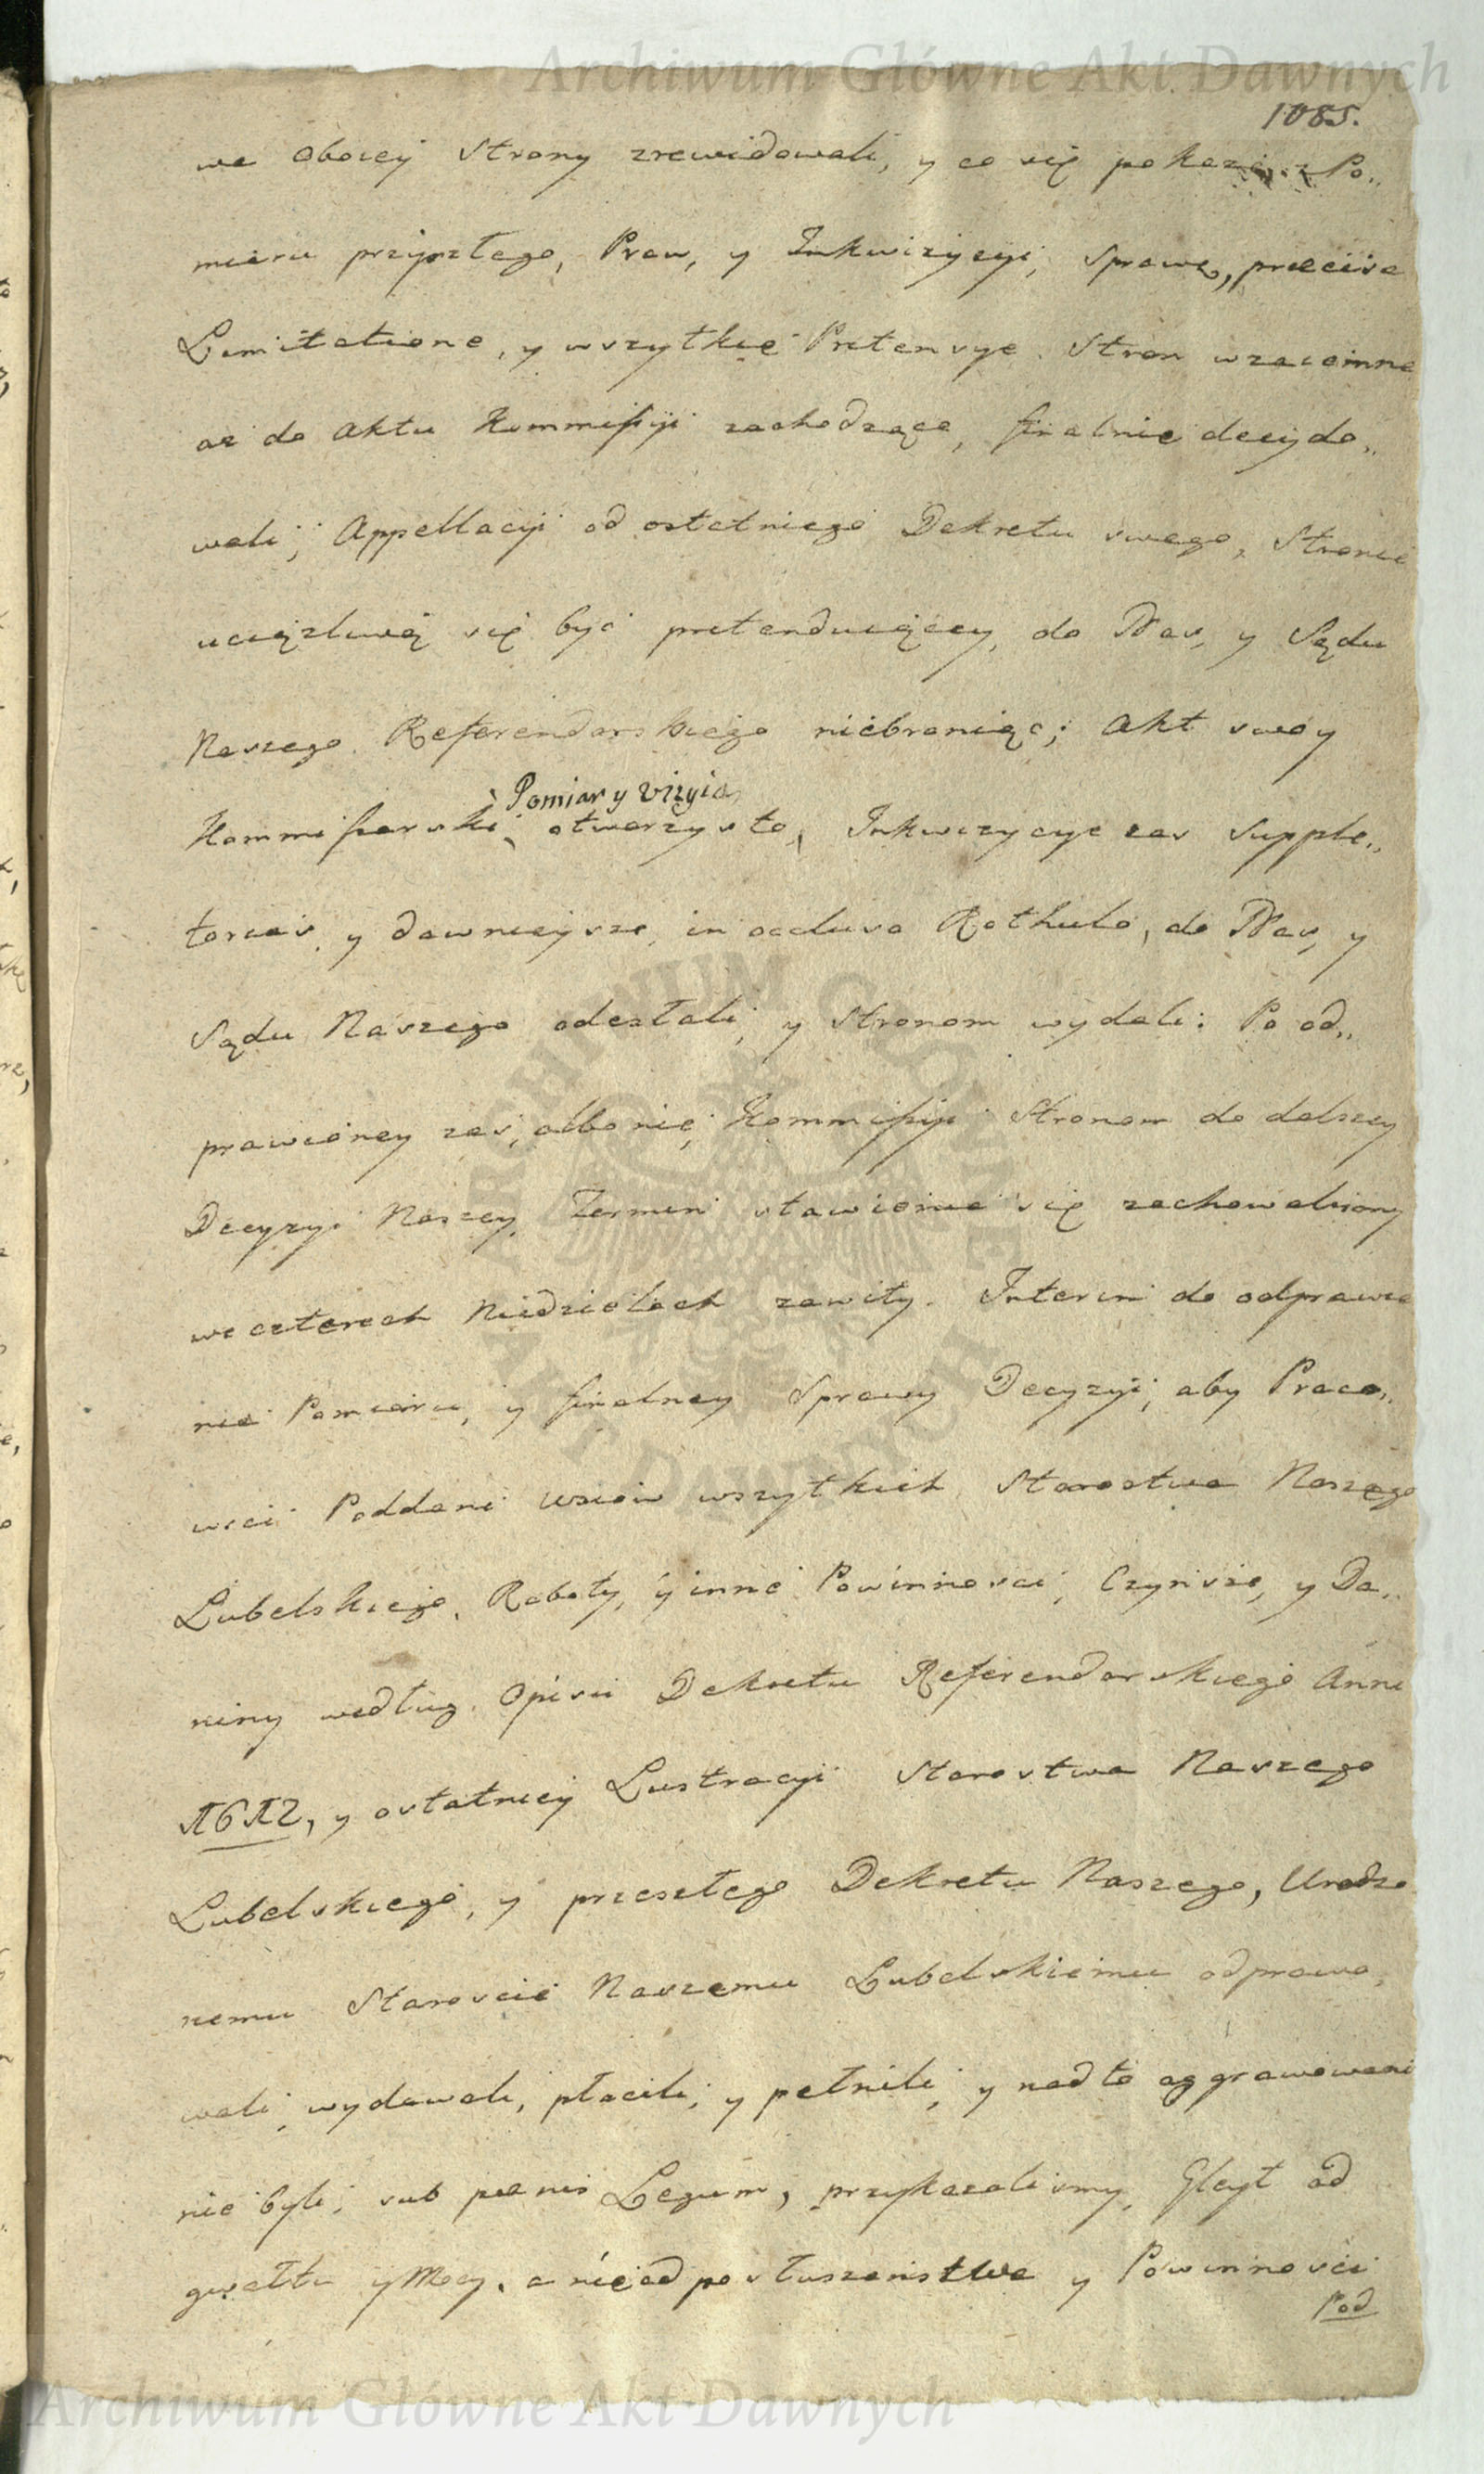 Archiwum Główne Akt Dawnych
1085.
we oboiey Strony zrewidowali, y co się pokaze z Po„
miaru przyszłego, Praw, y Inkwizycyi, Sprawę, præcisa
Limitatione, y wszytkie Pretensye Stron wzaiemne
az do Aktu Kommissyi zachodzące, finalnie decydo„
wali; Appellacyi od ostatniego Dekretu swego, Stronie
uciązliwą się być pretenduiącey, do Nas, y Sądu
Naszego Referendarskiego niebraniąc; Akt swoy
Pomiar y Vizyia
Kommissarski, otworzysto, Inkwizycye zas Supple„
torias, y dawnieysze, in occluso Rothulo, do Nas, y
Sądu Naszego odesłali, y Stronom wydali: Po od„
prawioney zas, albo nie, Kommissyi Stronom do dalszey
Decyzyi Naszey, Termin stawienia się zachowalismy
we czterech Niedzielach zawity. Interim do odprawie
nia Pomiaru, y finalney Sprawy Decyzyi, aby Praco„
wici Poddani wsiow wszytkich Starostwa Naszego
Lubelskiego, Roboty, y inne Powinnosci, Czynsze, y Da„
niny według Opisu Dekretu Referendarskiego Anni
1612, y ostatniey Lustracyi Starostwa Naszego
Lubelskiego, y przeszłego Dekretu Naszego, Urodzo
nemu Staroscie Naszemu Lubelskiemu odprawo„
wali, wydawali, płacili, y pełnili, y nadto aggrawowani
nie byli, sub pœnis Legum, przykazalismy, Gleyt od
gwałtu y Mocy, a nie od posłuszenstwa y Powinnosci
Pod
ARCHIWUM GŁÓWNE AKT DAWNYCH
Archiwum Główne Akt Dawnych